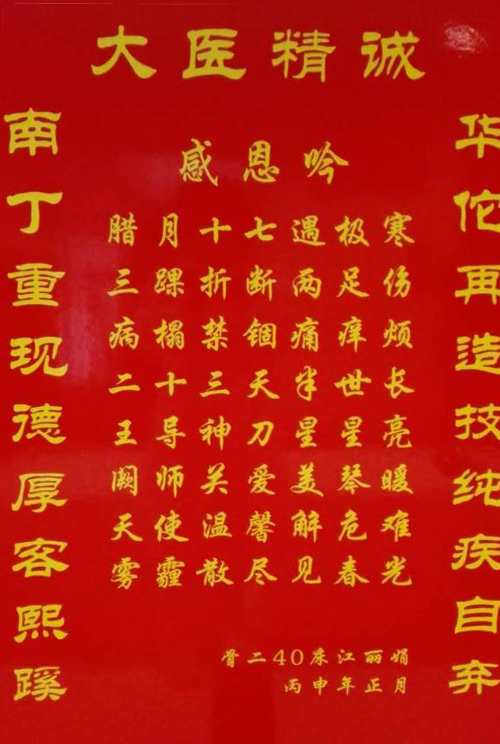 大医精诚
华佗再造技纯疾自弃
南丁重现德厚客熙蹊
感恩吟
腊月十七遇极寒
三踝折断两足伤
病榻禁锢痛痒烦
二十三天半世长
王导神刀星星亮
阙师关爱美琴暖
天使温馨解危难
雾霾散尽见春光
骨二40床江丽娟
丙申年正月